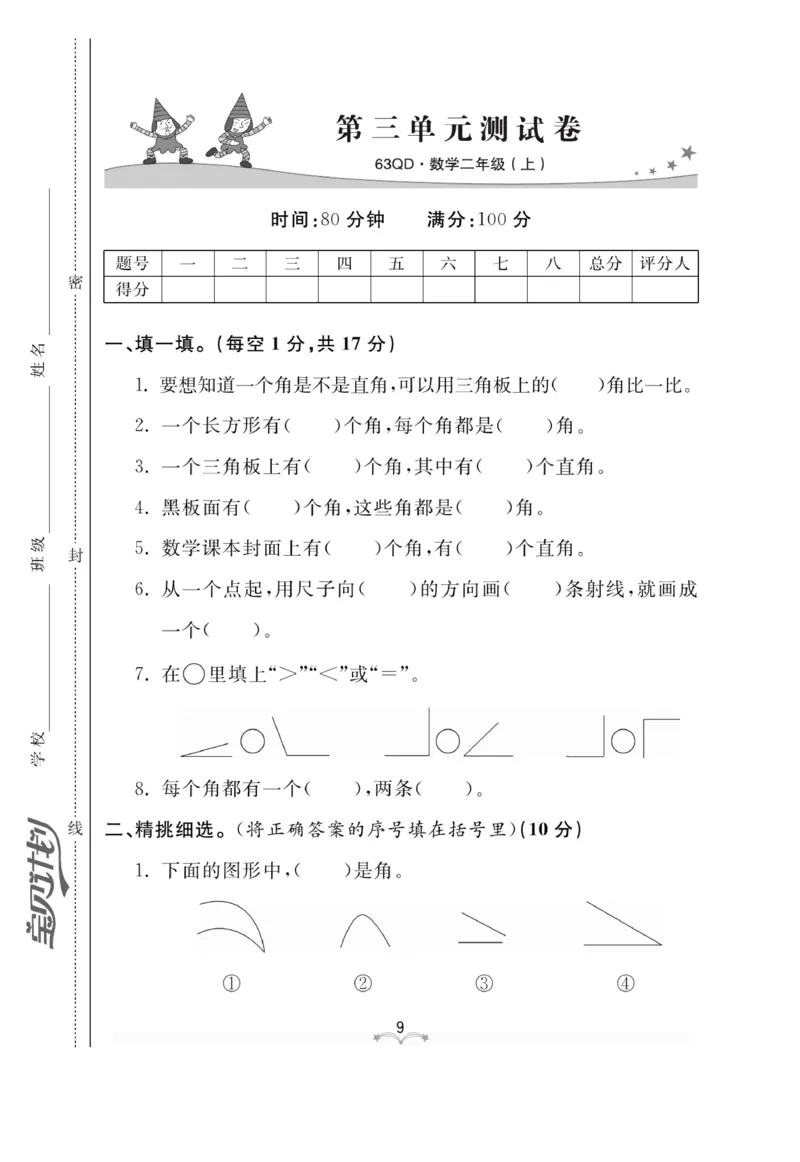 第三单元测试卷
63QD·数学二年级(上)
时间:80 分钟 满分:100 分
题号 一 二 三 四 五 六 七 八 总分 评分人
得分
一、填一填。(每空 1 分,共 17 分)
1. 要想知道一个角是不是直角,可以用三角板上的( )角比一比。
2. 一个长方形有( )个角,每个角都是( )角。
3. 一个三角板上有( )个角,其中有( )个直角。
4. 黑板面有( )个角,这些角都是( )角。
5. 数学课本封面上有( )个角,有( )个直角。
6. 从一个点起,用尺子向( )的方向画( )条射线,就画成
一个( )。
7. 在○里填上“>”“<”或“=”。
8. 每个角都有一个( ),两条( )。
二、精挑细选。(将正确答案的序号填在括号里)(10 分)
1. 下面的图形中,( )是角。
① ② ③ ④
9
密
封
线
姓名
班级
学校
宝贝计划